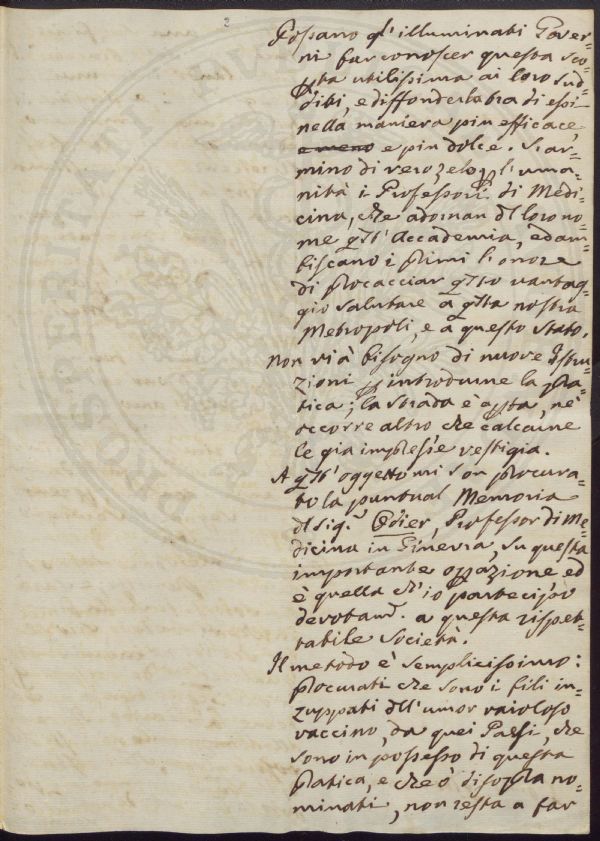 2
Possano gl'illuminati Gover=
ni far conoscer questa sco=
pta utilissima ai loro sud=
diti, e diffonderla tra di essi
nella maniera piu efficace,
e meno e piu dolce. Si ar=
mino di vero zelo p l'uma=
nità i Professori di Medi=
cina, che adornan dl loro no=
me qst' Accademia, ed am=
biscano i primi l'onore
di procacciar qsto vantag=
gio salutare a qsta nostra
Metropoli, e a questo stato.
Non vi à bisogno di nuove Istru=
zioni p introdurne la pra=
tica; la strada è apta, nè
occorre altro che calcarne
le gia impresse vestigia.
A qst' oggetto mi son procura=
to la puntual Memoria
dl Sigr. Odier, Professor di Me=
dicina in Ginevra, su questa
importante opazione ed
è quella ch'io partecipo
devotamte. a questa rispet=
tabile Società.
Il metodo è semplicissimo:
procurati che sono i fili in=
zuppati dll'umor vaioloso
vaccino, da quei Paesi, che
sono in possesso di questa
pratica, e che ò di sopra no=
minati, non resta a far